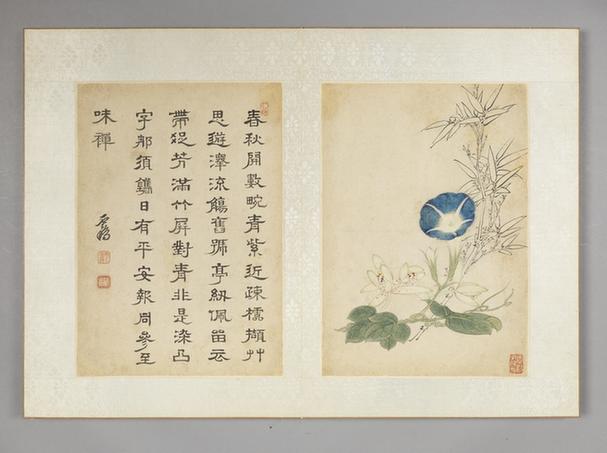 春秋開數畹青紫近疎櫺擷艸
思遊流觴舊號亭紉佩云
帶芳滿竹屏對青非是染凸
字那須鐫日有平安報同參至
味禪